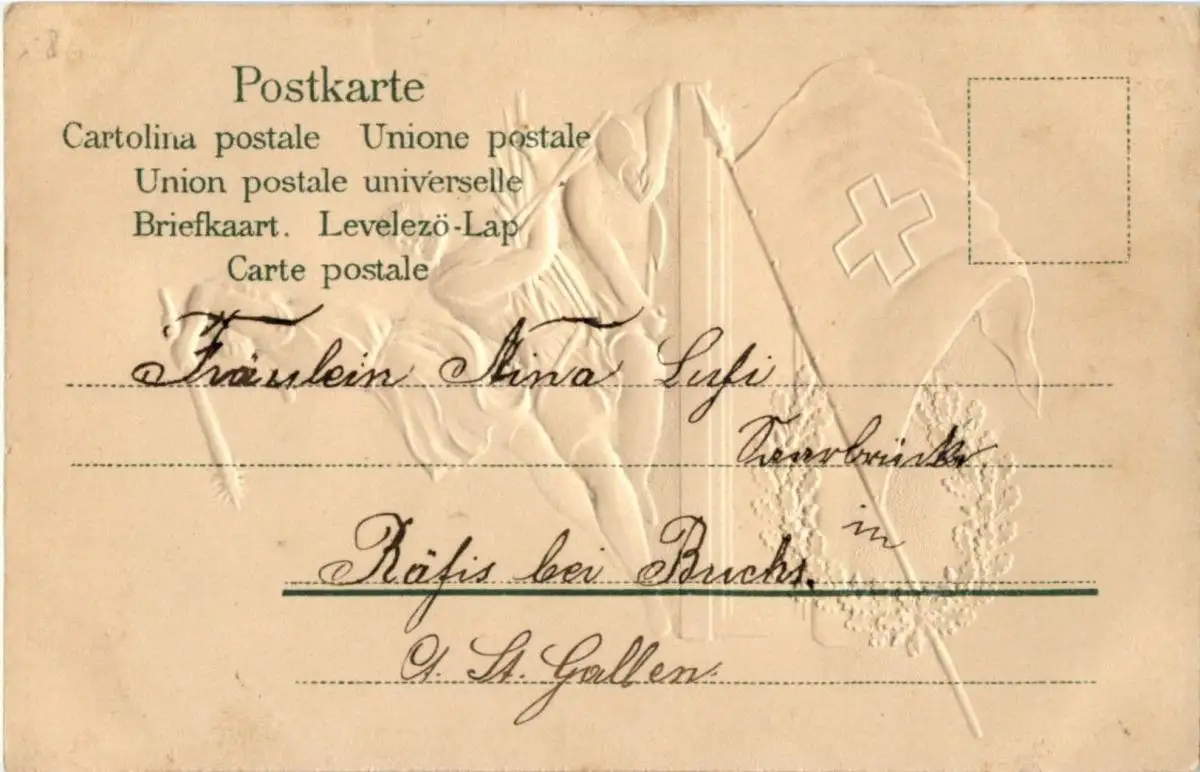 Postkarte
Cartolina postale Unione postale
Union postale universelle
Briefkaart. Levelezö-Lap
Carte postale
Fräulein Nina
in
Räfis bei Buchs.
Ct. St. Gallen.